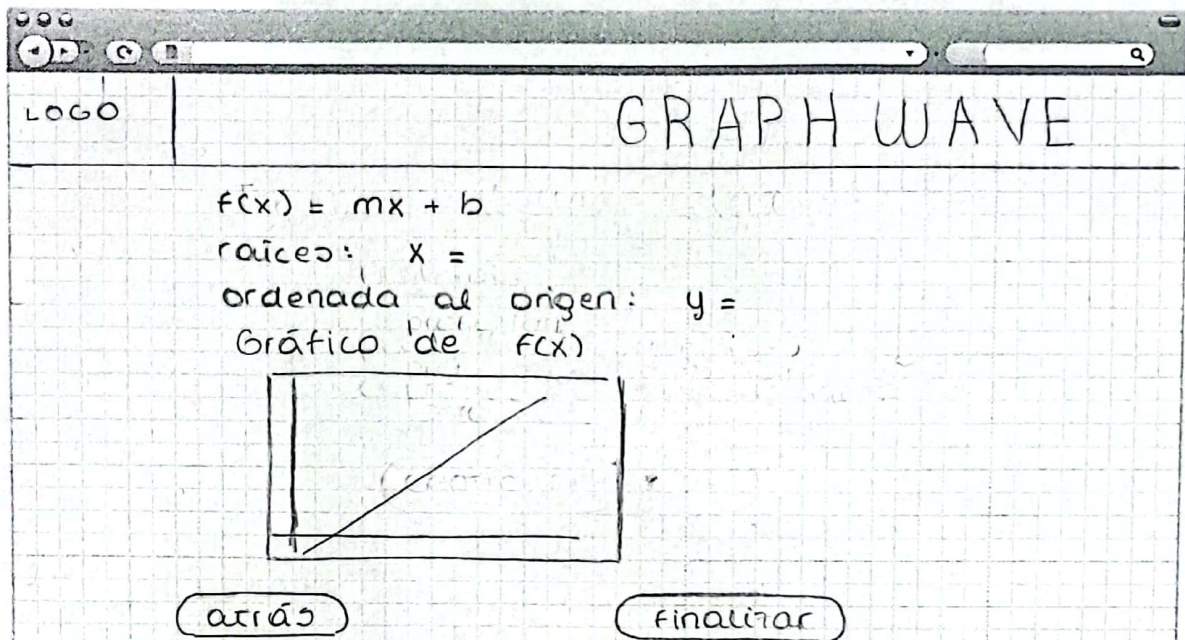 LOGO
GRAPH WAVE
f(x) = mx + b
raíces: x =
ordenada al origen: y =
Gráfico de f(x)
atrás
finalizar